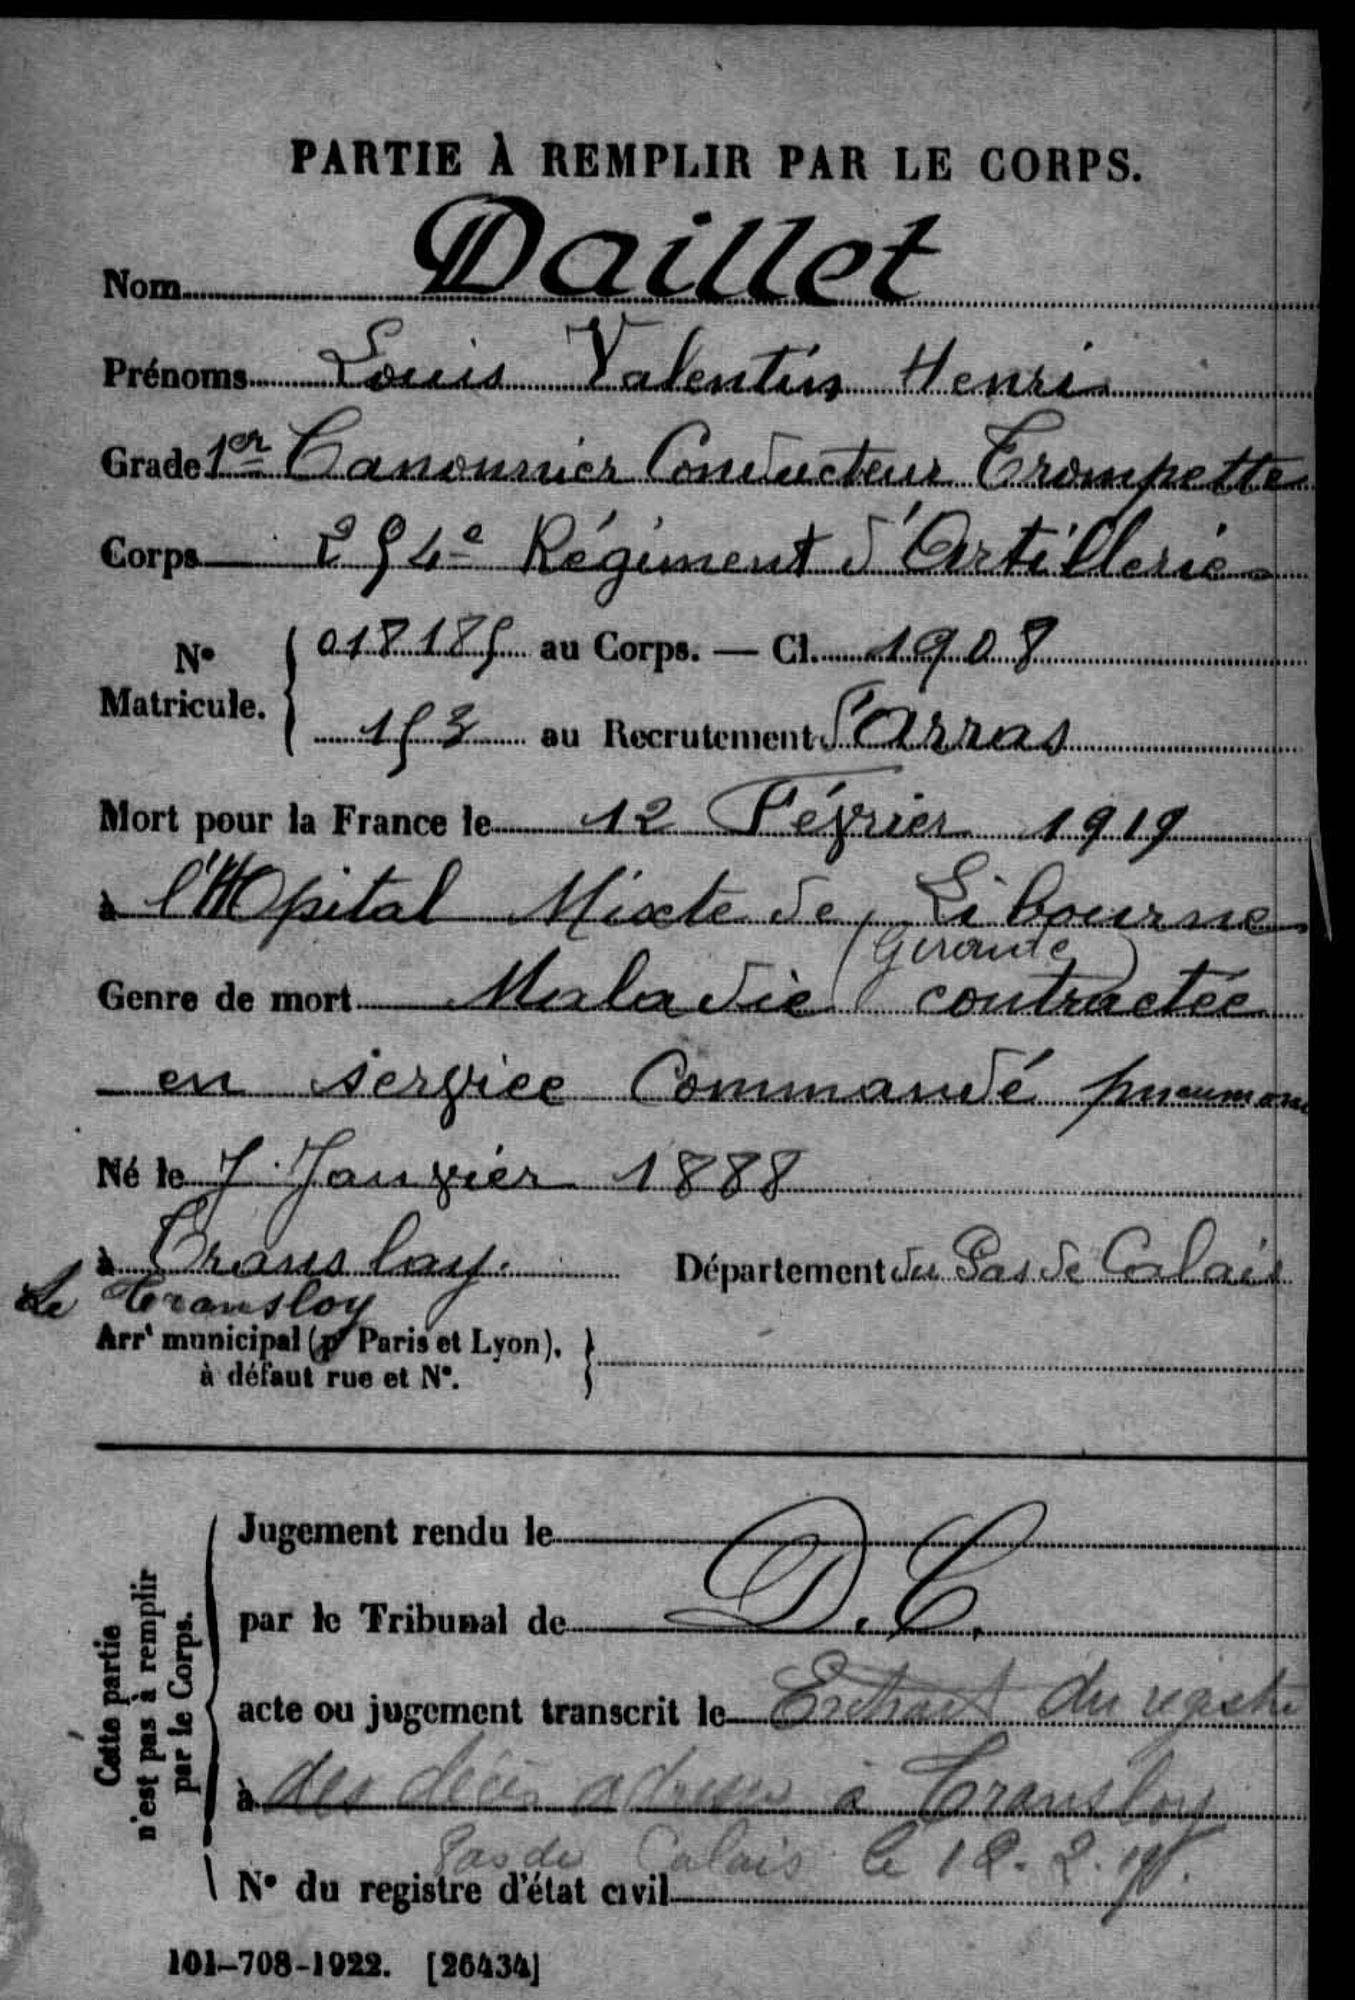 PARTIE À REMPLIR PAR LE CORPS.
Nom Daillet
Prénoms Louis Valentin Henri
Grade 1er Canonnier Conducteur Trompette
Corps 254e Régiment d'Artillerie
N° Matricule. 018185 au Corps. — Cl. 1908
153 au Recrutement d'Arras
Mort pour la France le 12 Février 1919
à l'Hopital Mixte de Libourne
(Gironde)
Genre de mort Maladie contractée
en service Commandé pneumonie
Né le 7 Janvier 1888
à Translay. Département du Pas de Calais
Le Transloy
Arrt municipal (pr Paris et Lyon),
à défaut rue et N°.
Cette partie
n'est pas à remplir
par le Corps.
Jugement rendu le
par le Tribunal de D.C.
acte ou jugement transcrit le Extrait du registre
à des décès adressé à Transloy
Pas de Calais le 12.2.19.
N° du registre d'état civil
101-708-1922. [26434]